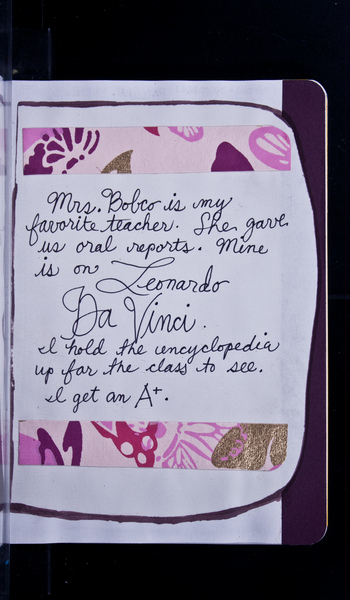 Mrs. Bobco is my
favorite teacher. She gave
us oral reports. Mine
is on Leonardo
Da Vinci.
I hold the encyclopedia
up for the class to see.
I get an A+.